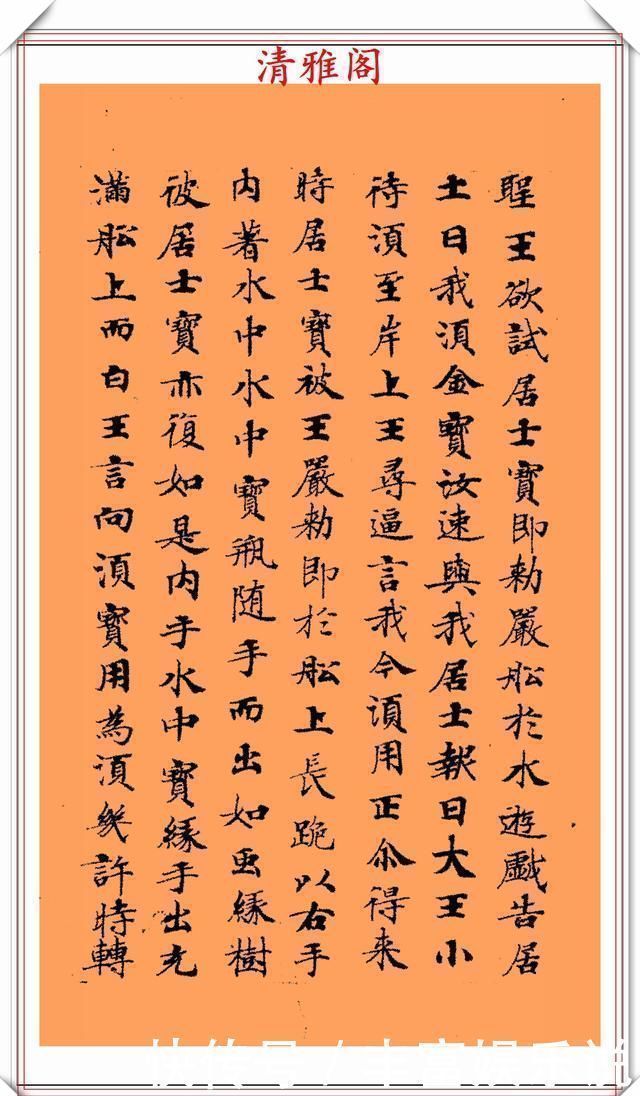 清雅阁
聖王欲試居士寶即勅嚴舩於水遊戱告居
士曰我湏金寶汝速與我居士報曰大王小
待湏至岸上王尋逼言我今湏用正尒得来
時居士寶被王嚴勅即於舩上長跪以右手
内著水中水中寶瓶随手而出如虫緣樹
彼居士寶亦復如是内手水中寶緣手出充
滿舩上而白王言向湏寶用為湏幾許時轉